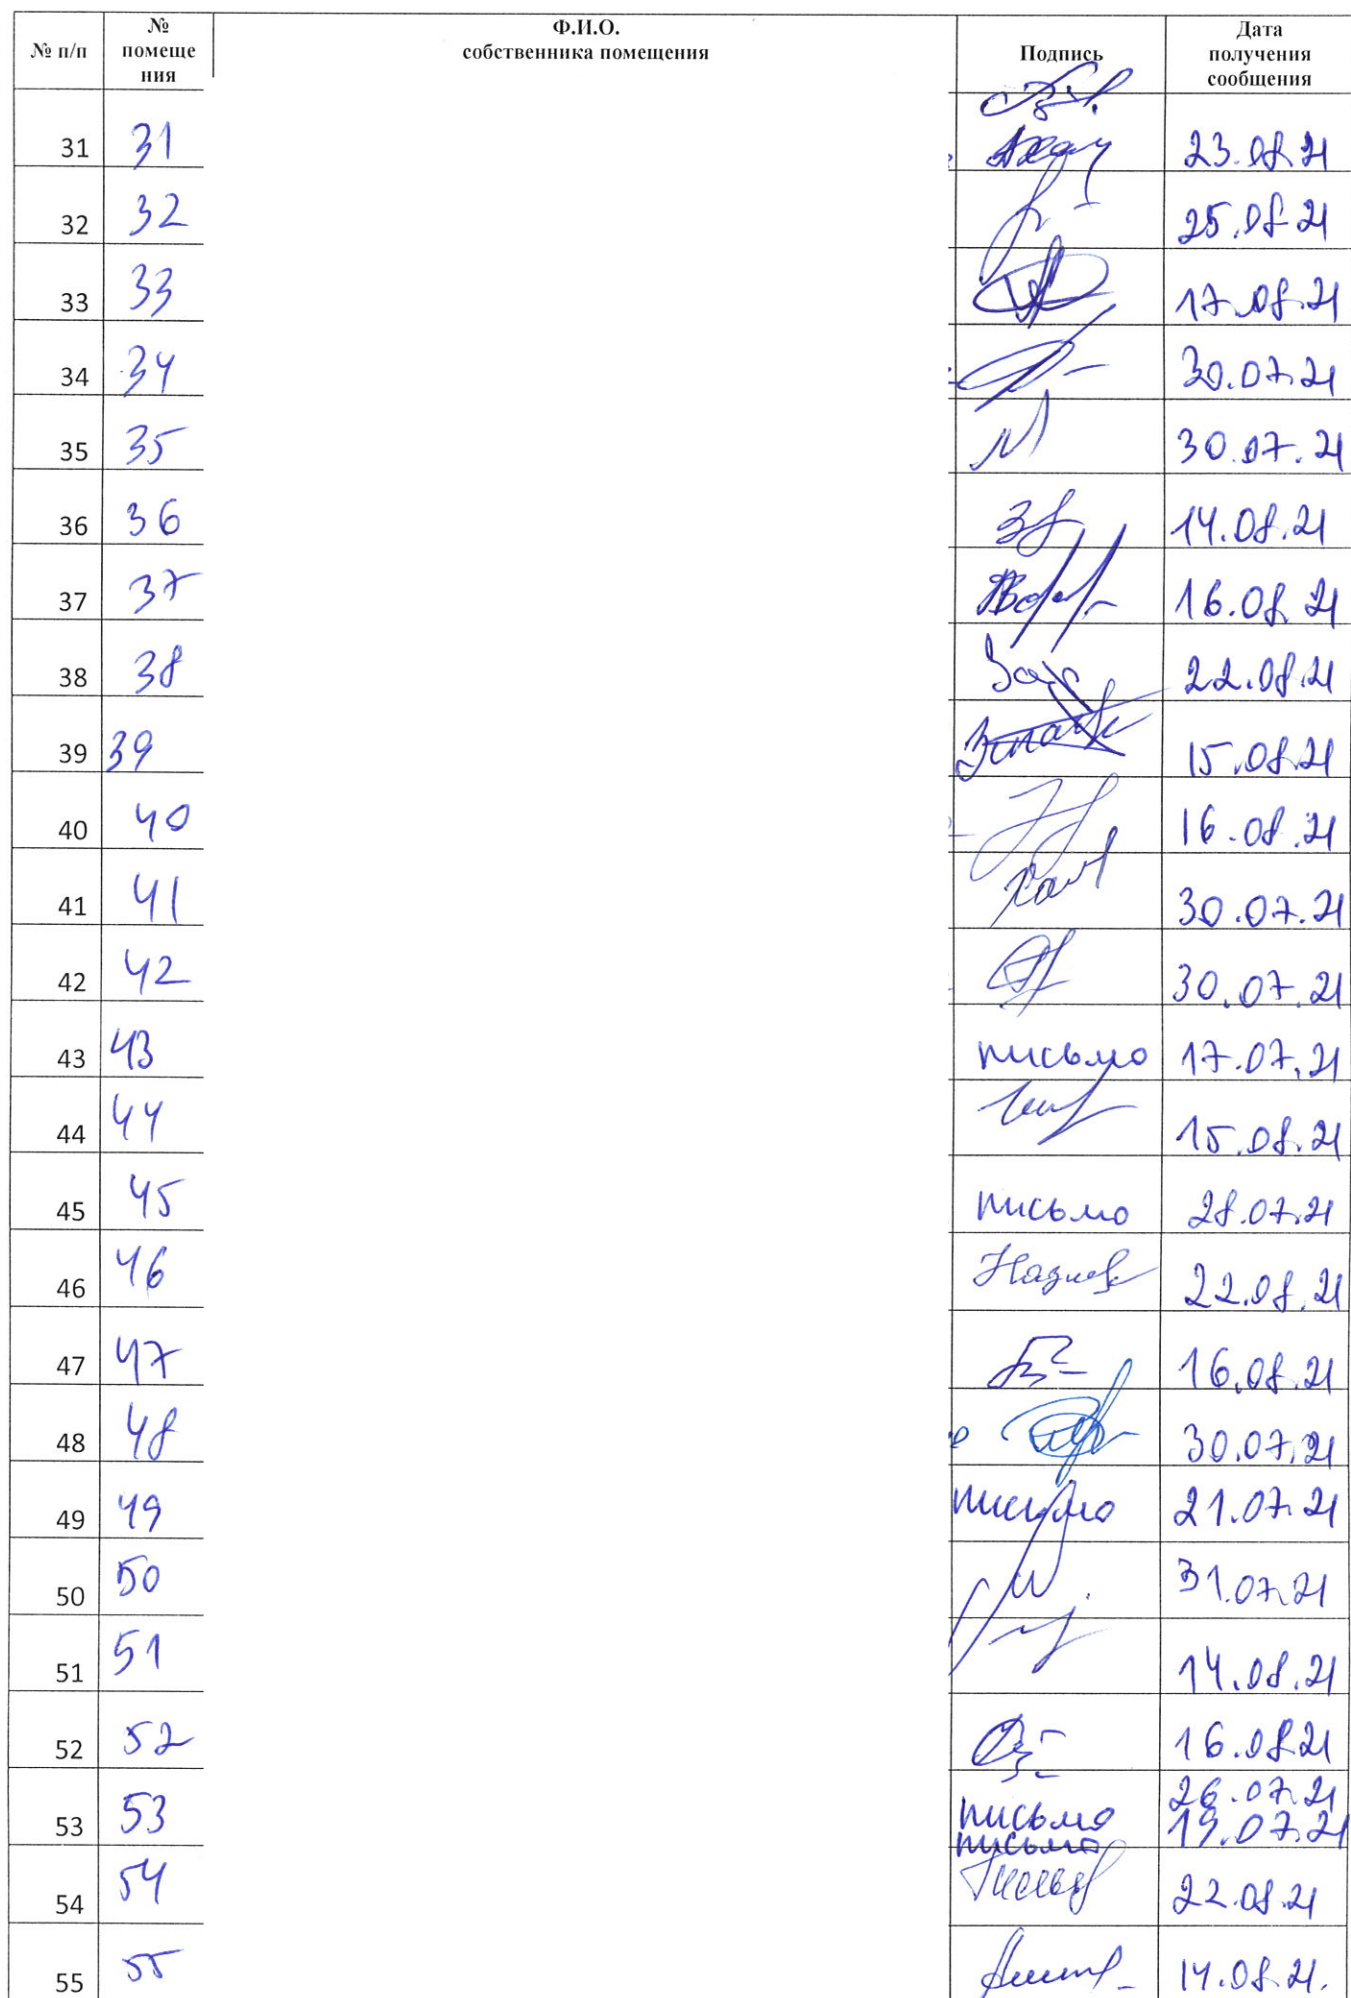 № п/п № помеще ния Ф.И.О. собственника помещения Подпись Дата получения сообщения
31 31 23.08.21
32 32 25.08.21
33 33 17.08.21
34 34 30.07.21
35 35 30.07.21
36 36 14.08.21
37 37 16.08.21
38 38 22.08.21
39 39 15.08.21
40 40 16.08.21
41 41 30.07.21
42 42 30.07.21
43 43 письмо 17.07.21
44 44 15.08.21
45 45 письмо 28.07.21
46 46 22.08.21
47 47 16.08.21
48 48 30.07.21
49 49 письмо 21.07.21
50 50 31.07.21
51 51 14.08.21
52 52 16.08.21
26.07.21
53 53 письмо 19.07.21
письмо
54 54 22.08.21
55 55 14.08.21.